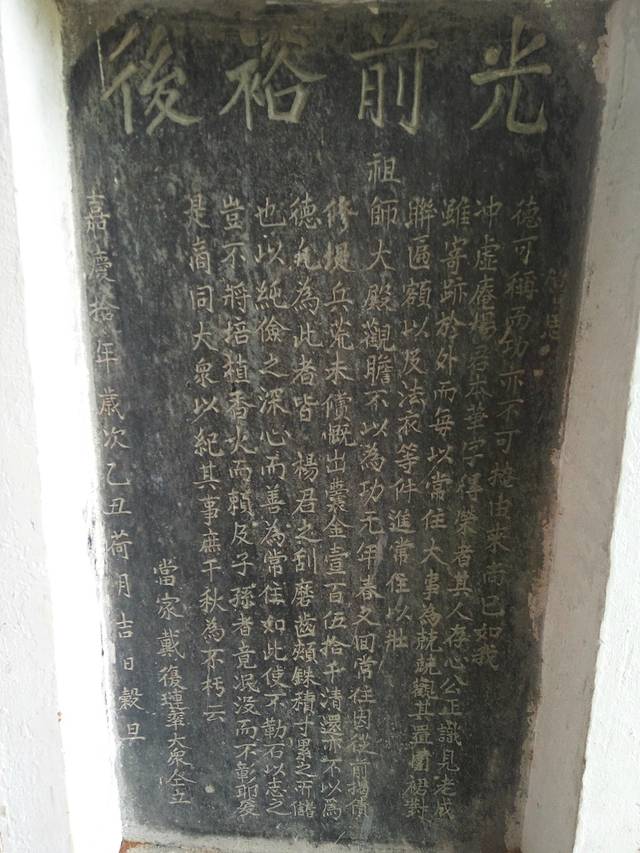 光前裕後
德可稱而功亦不可掩由來尚已如我
冲虛庵楊君本華字得榮者其人存心公正識見老成
雖寄跡於外而每以常住大事為兢兢觀其置圍裙對
聯匾額以及法衣等件進常住以壯
祖師大殿觀瞻不以為功元年春又回常住因從前揹債
修堤兵荒未償慨出囊金壹百伍拾千清還亦不以為
德凡為此者皆楊君之刮磨齒頰銖積寸累之所儲
也以純儉之深心而善為常住如此使不勒石以志之
豈不將培植香火而賴及子孫者竟泯没而不彰耶爰
是商同大衆以紀其事庶千秋為不朽云
當家戴復璉率大衆仝立
嘉慶拾年歲次乙丑荷月吉日穀旦